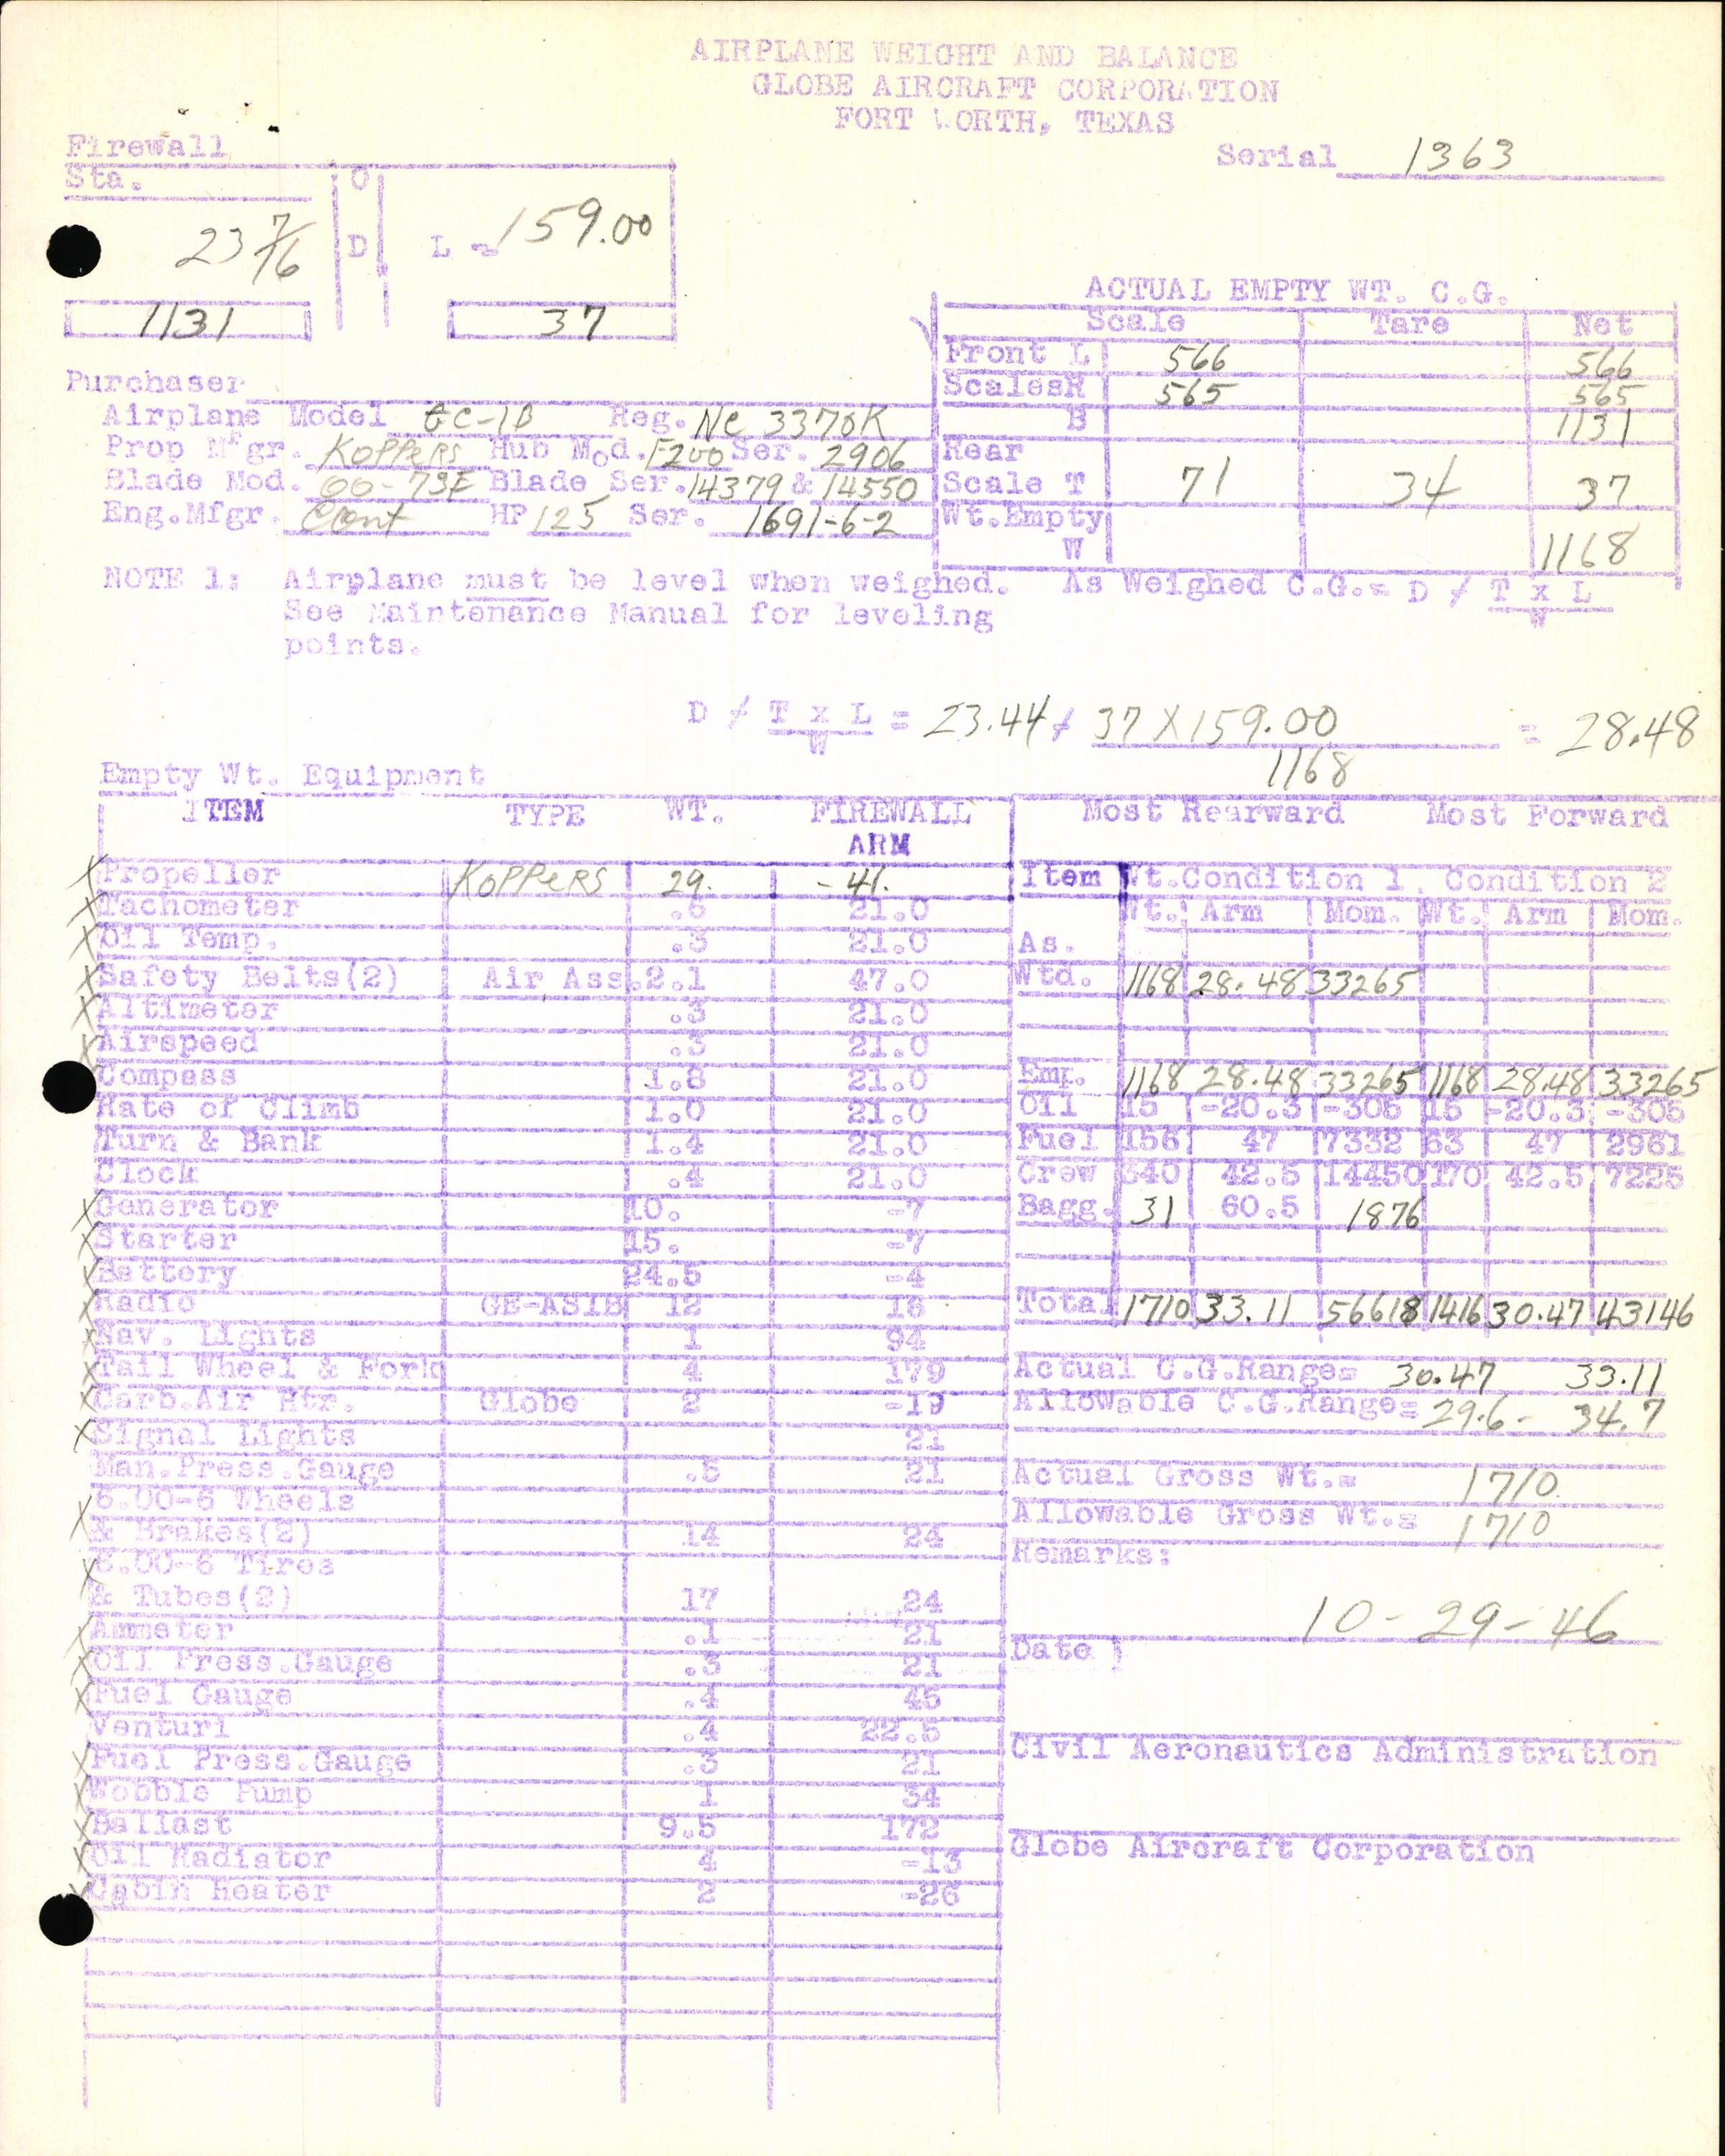 AIRPLANE WEIGHT AND BALANCE
GLOBE AIRCRAFT CORPORATION
FORT WORTH, TEXAS
Serial 1363
Firewall
Sta.
23 7/16
O
D
L = 159.00
1131
37
ACTUAL EMPTY WT. C.G.
Scale Tare Net
Front L 566 566
Scales R 565 565
B 1131
Rear
Scale T 71 34 37
Wt.Empty
W 1168
Purchaser
Airplane Model GC-1B Reg. NC 3370K
Prop Mfgr. KOPPERS Hub Mod. F200 Ser. 2906
Blade Mod. 00-73E Blade Ser. 14379 & 14550
Eng.Mfgr. Cont HP 125 Ser. 1691-6-2
NOTE 1: Airplane must be level when weighed. As Weighed C.G.= D / T x L
W
See Maintenance Manual for leveling
points.
D / T x L = 23.44 / 37 X 159.00 = 28.48
W 1168
Empty Wt. Equipment
ITEM TYPE WT. FIREWALL
ARM
X Propeller KOPPERS 29. -41.
X Tachometer .6 21.0
X Oil Temp. .3 21.0
X Safety Belts(2) Air Ass. 2.1 47.0
X Altimeter .3 21.0
X Airspeed .3 21.0
Compass 1.8 21.0
Rate of Climb 1.0 21.0
Turn & Bank 1.4 21.0
Clock .4 21.0
X Generator 10. -7
X Starter 15. -7
X Battery 24.5 -4
X Radio GE-AS1B 12 16
X Nav. Lights 1 94
X Tail Wheel & Fork 4 179
X Carb.Air Htr. Globe 2 -19
X Signal Lights 21
Man.Press.Gauge .5 21
X 6.00-6 Wheels
& Brakes(2) 14 24
X 6.00-6 Tires
& Tubes(2) 17 24
X Ammeter .1 21
X Oil Press.Gauge .3 21
X Fuel Gauge .4 45
Venturi .4 22.5
X Fuel Press.Gauge .3 21
X Wobble Pump 1 34
X Ballast 9.5 172
X Oil Radiator 4 -13
X Cabin Heater 2 -26
Most Rearward Most Forward
Item Wt.Condition 1. Condition 2
Wt. Arm Mom. Wt. Arm Mom.
As.
Wtd. 1168 28.48 33265
Emp. 1168 28.48 33265 1168 28.48 33265
Oil 15 -20.3 -305 15 -20.3 -305
Fuel 156 47 7332 63 47 2961
Crew 340 42.5 14450 170 42.5 7225
Bagg. 31 60.5 1876
Total 1710 33.11 56618 1416 30.47 43146
Actual C.G.Range= 30.47 33.11
Allowable C.G.Range= 29.6 - 34.7
Actual Gross Wt.= 1710
Allowable Gross Wt.= 1710
Remarks:
10-29-46
Date
Civil Aeronautics Administration
Globe Aircraft Corporation